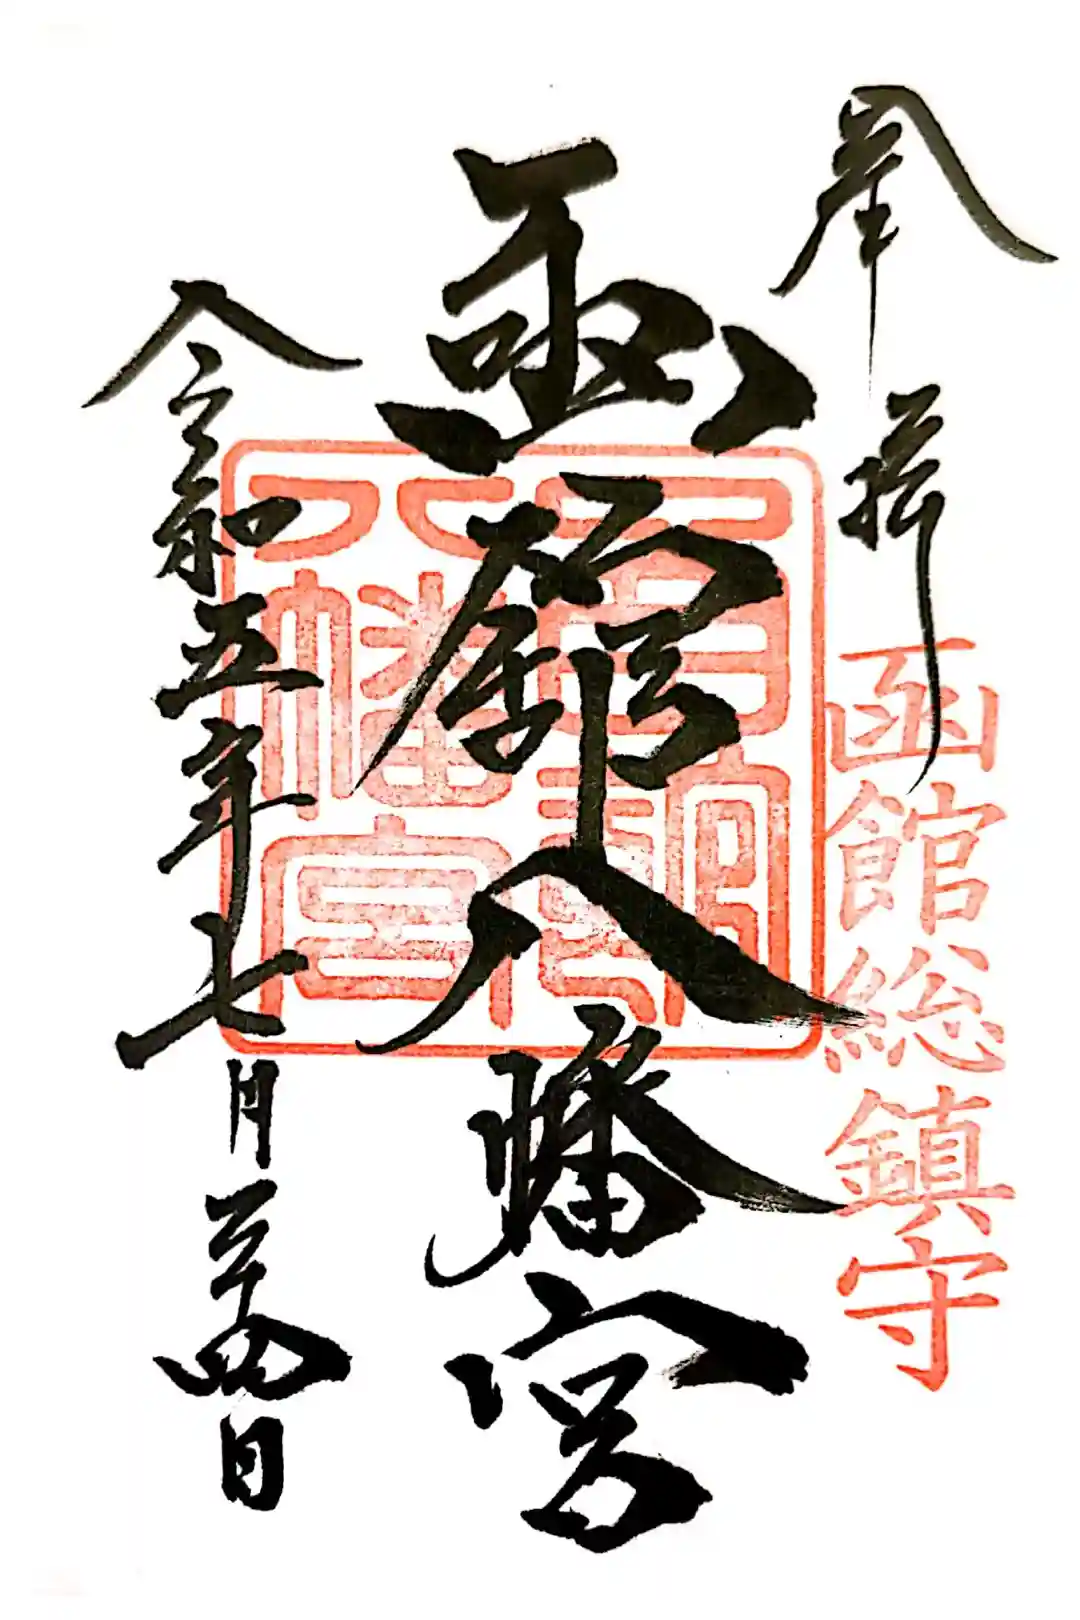 奉拝
函館総鎮守
函館八幡宮
函館
八幡宮
令和五年七月二十四日